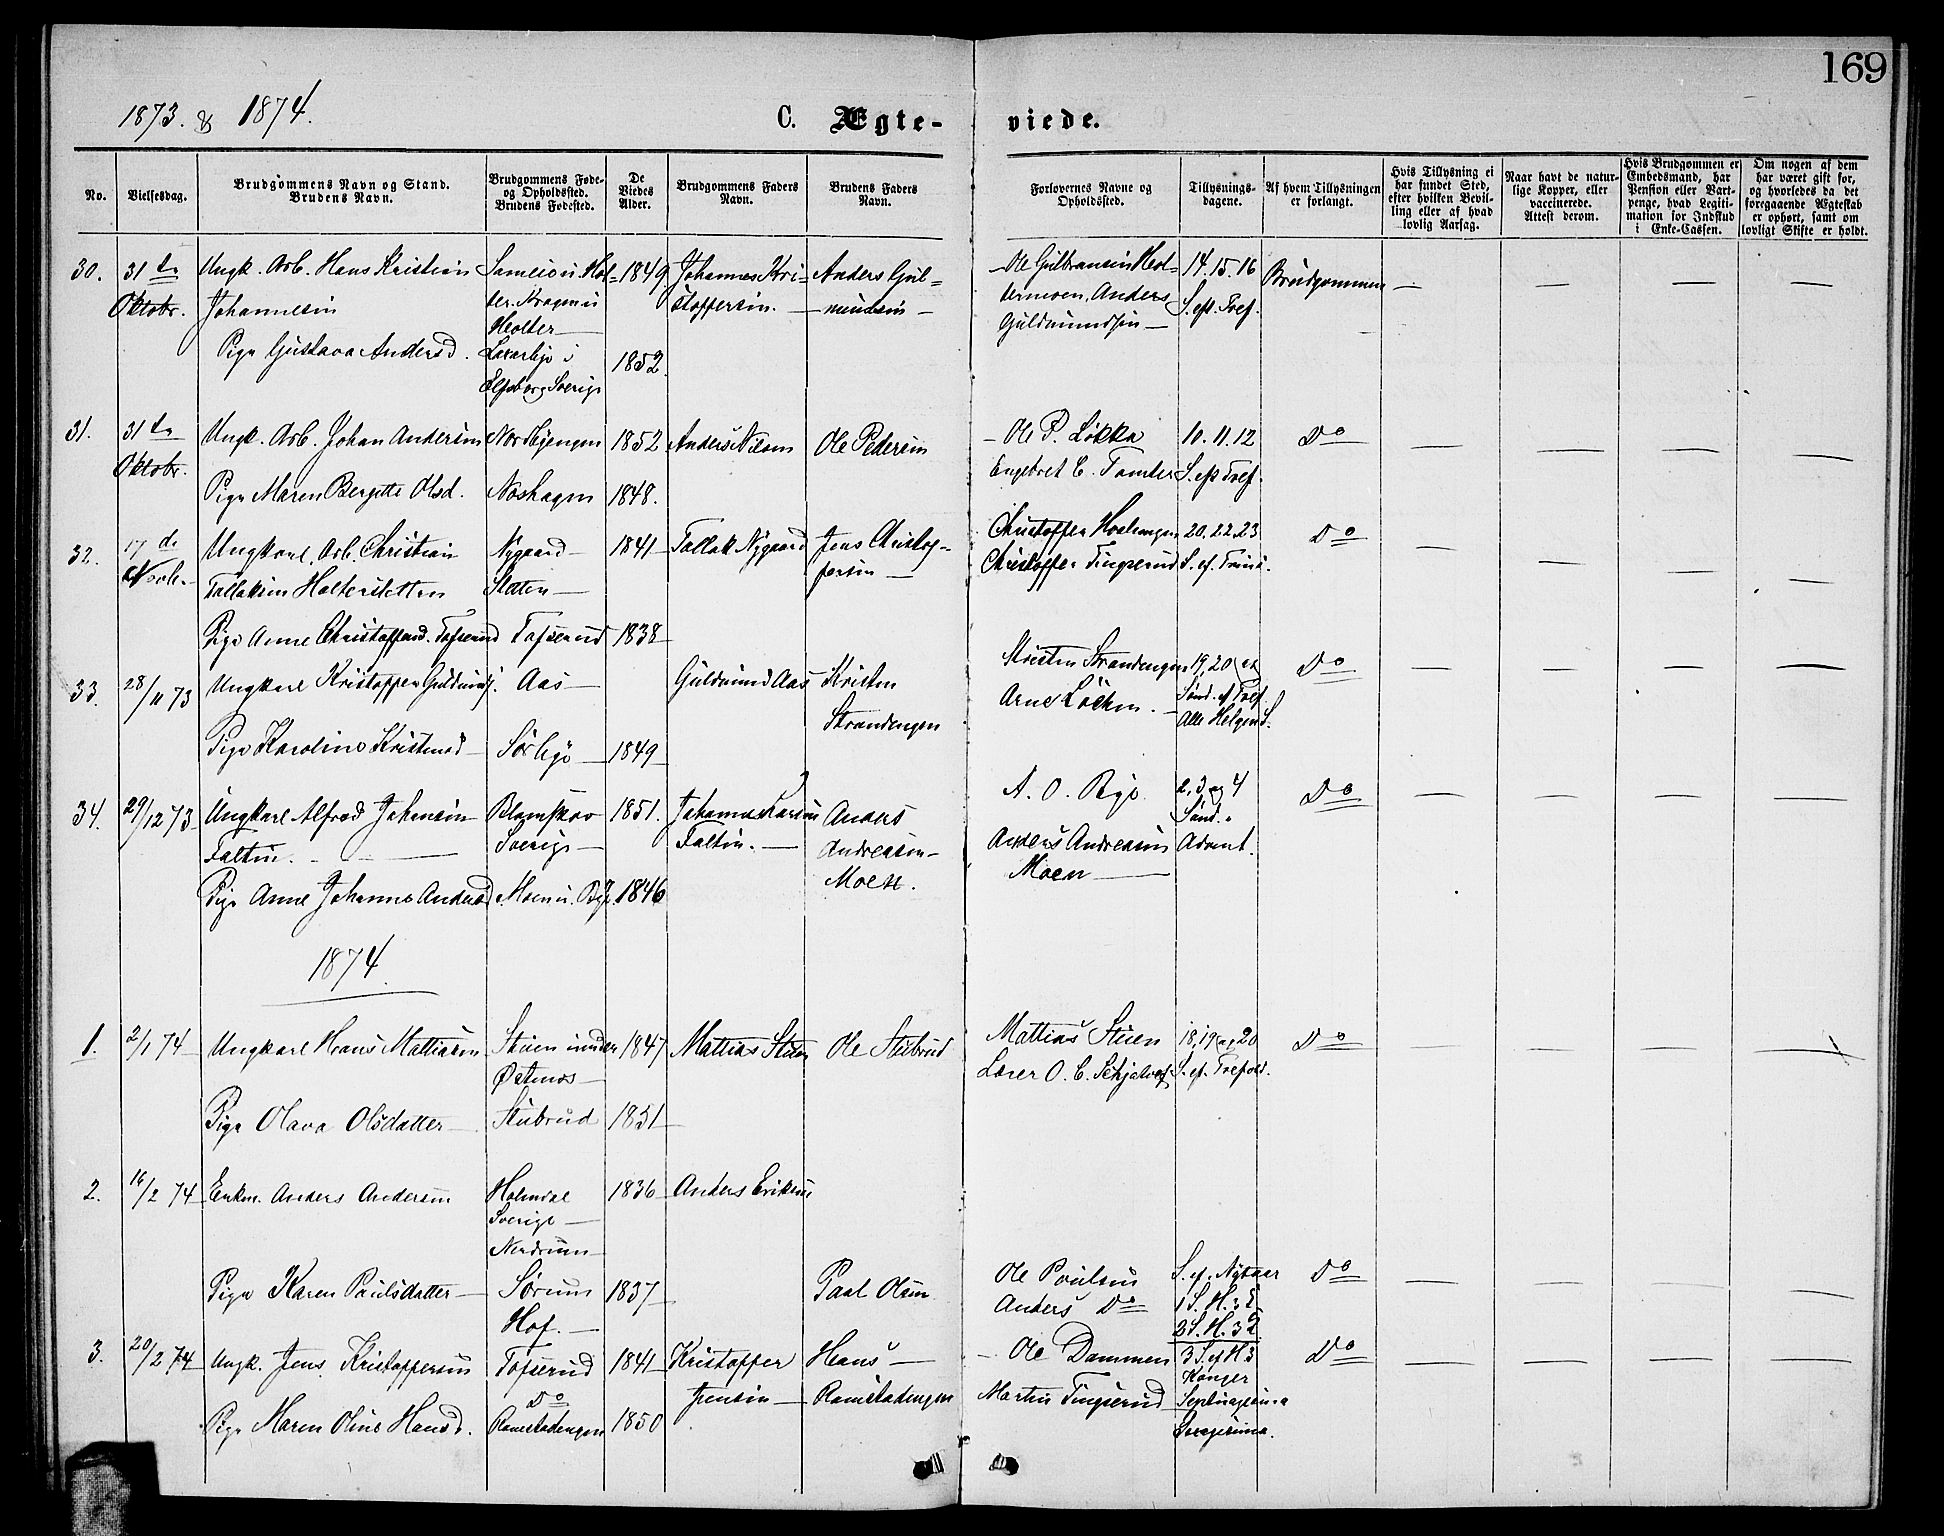 169
1873. & 1874.
C. Ægte- viede.
No.
Vielsesdag.
Brudgommens Navn og Stand.
Brudens Navn.
Brudgommens Føde-
og Opholdssted.
Brudens Fødested.
De
Viedes
Alder.
Brudgommens Faders
Navn.
Brudens Faders
Navn.
Forlovernes Navne og
Opholdssted.
Tillysnings-
dagene.
Af hvem Tillysningen
er forlangt.
Hvis Tillysning ei
har fundet Sted,
efter hvilken Bevil-
ling eller af hvad
lovlig Aarsag.
Naar havt de natur-
lige Kopper, eller
vaccinerede.
Attest derom.
Hvis Brudgommen er
Embedsmand, har
Pension eller Vart-
penge, hvad Legiti-
mation for Indskud
i Enke-Cassen.
Om nogen af dem
har været gift før,
og hvorledes da det
foregaaende Ægteskab
er ophørt, samt om
lovligt Skifte er holdt.
30. 31 Ungk. Arb. Hans Kristian 1849 Johannes Kri- Anders Gul- Ole Gulbransen 14. 15. 16 Brudgommen
Oktobr. Johannesen Holter stoffersen. Anders S. eft. Tref.
Guldmundsen
Pige Gustava Andersd. 1852
Elfsborg Sverige
31. 31 Ungk. Arb. Johan Andersen 1852 Anders Nilsen Ole Pedersen Ole P. Løkka 10. 11. 12 Do
Oktobr. Engebret C. Tomter S. eft Tref.
Pige Maren Bergitte Olsd. Noshagen 1848.
32. 17 Ungkarl. Arb. Christian Nygaard 1841 Tollak Nygaard Jens Christof- Christoffer 20. 22. 23 Do
Novbr. Tollaksen Holtersletten Sletten fersen Christoffer Tingserud S. ef. Trinit.
Pige Anne Christoffersd. Tofserud Tofserud 1838
33. 28/11 73 Ungkarl Kristoffer Guldmunds. Aas Guldmund Aas Kristen Kristen Strandengen 19, 20 Do
Strandengen Arne Løken. Sønd. ef Tref.
Alle Helgens S.
Pige Karoline Kristensd Sørbye 1849
34. 29/12 73 Ungkarl Alfred Johansen Blomskov 1851. Johannes Larsen Anders A. O. Bye 2, 3 og 4 Do
Faltin. Sverige Faltin. Andreasen Sønd. i
Moen. Anders Andreasen Advent.
Moen
Pige Anne Johanne Andersd Moen u. Bye 1846
1874
1. 2/1 74 Ungkarl Hans Mattiasen Stuen under 1847 Mattias Stuen Ole Stubrud Mattias Stuen 18, 19 og 20 Do
Østmos Lærer O. C. S. ef. Trefold.
Pige Olava Olsdatter Stubrud 1851
2. 16/2 74 Enkm. Anders Andersen Holmdal 1836 Anders Eriksen
Sverige
Nordrum
Pige Karen Paulsdatter Sørum 1837 Paal Olsen Ole Poulsen S. ef. Nytaar Do
Hof. Anders Do 1 S. H. 3 K
2 S. H. 3 K
3. 20/2 74 Ungk. Jens Kristoffersen Tofserud 1841 Kristoffer Hans Ole Dammen 3 S. ef H 3 Do
Do Jensen Ramstadengen Martin Tingserud Konger
Pige Maren Oline Hansd. Ramstadengen 1850 Septuagesima
Sexagesima.